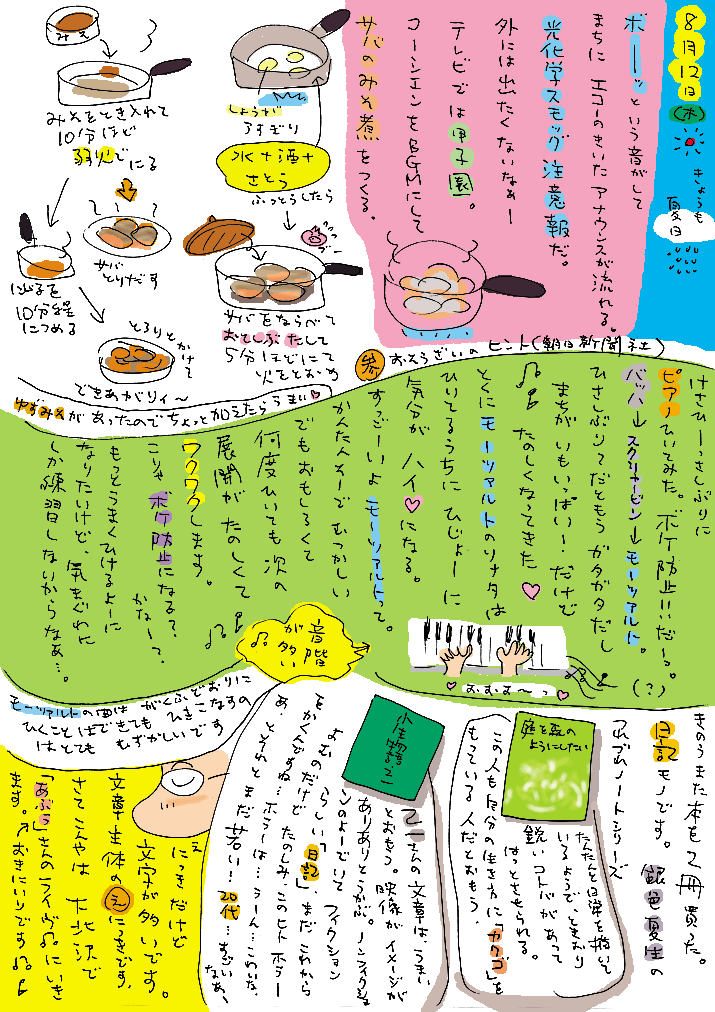 8月12日(木)
きょうも
夏日
ボーッという音がして
まちに エコーのきいた アナウンスが流れる。
光化学スモッグ 注意報だ。
外には出たくないなぁー
テレビでは 甲子園。
コーシエンをBGMにして
サバのみそ煮をつくる。
しょうが
うすぎり
水+酒+
さとう
ふっとうしたら
サバをならべて
おとしぶたして
5分ほどにて
火をとおす
みそ
みそをとき入れて
10分ほど
弱火でにる
サバ
とりだす
にじるを
10分程
につめる
とろりとかけて
できあがりィ〜
ゆずみそがあったのでちょっと加えたらうまい♡
参 おそうざいのヒント(朝日新聞社)
けさひーっさしぶりに
ピアノひいてみた。ボケ防止!!だーる。(?)
バッハ→スクリャービン→モーツァルト。
ひさしぶりでだともうガタガタだし
まちがいもいっぱい!だけど
♪♪たのしくなってきた♡
とくにモーツァルトのソナタは
ひいてるうちに ひじょーに
気分が ハイ♡になる。
すっごーいよ モーツァルトって。
かんたんそーでむつかしい
でもおもしろくて
何度ひいても 次の
展開が たのしくて♪
ワクワクします。♪♪
こりゃ ボケ防止になる?
かなー?、
もっとうまくひけるよーに
なりたいけど、気まぐれに
しか練習しないからなぁ…。
音階
が多い
♪♪
♡おすすめ〜っ♡
モーツァルトの曲は がくふどおりに
ひくことはできても ひきこなすの
はとても むずかしいです
きのうまた本を2冊買った。
日記モノです。 銀色夏生の
つれづれノートシリーズ
庭と森の
ようにしたい
たんたんと日常を描いて
いるようで、ときおり
鋭いコトバがあって
はっとさせられる。
この人も自分の生き方に「カクゴ」を
もっている人だとおもう
小生物語
乙一
乙一さんの文章は、うまい
とおもう。映像がイメージが
ありありとうかぶ。ノンフィクション
のよーでいて フィクション
らしい「日記」 まだ これから
よむのだけど たのしみ、このヒト ホラー
をかくんですね…ホラーは…うーん…こわいな、
あ、とそれと まだ 若い! 20代…すごいなぁ、
え
にっきだけど
文字が多いです。
文章主体のえにっきです。
さてこんやは 下北沢で
「あぶぅ」さんのライヴ♪にいき
ます。↗おきにいりです♪♪